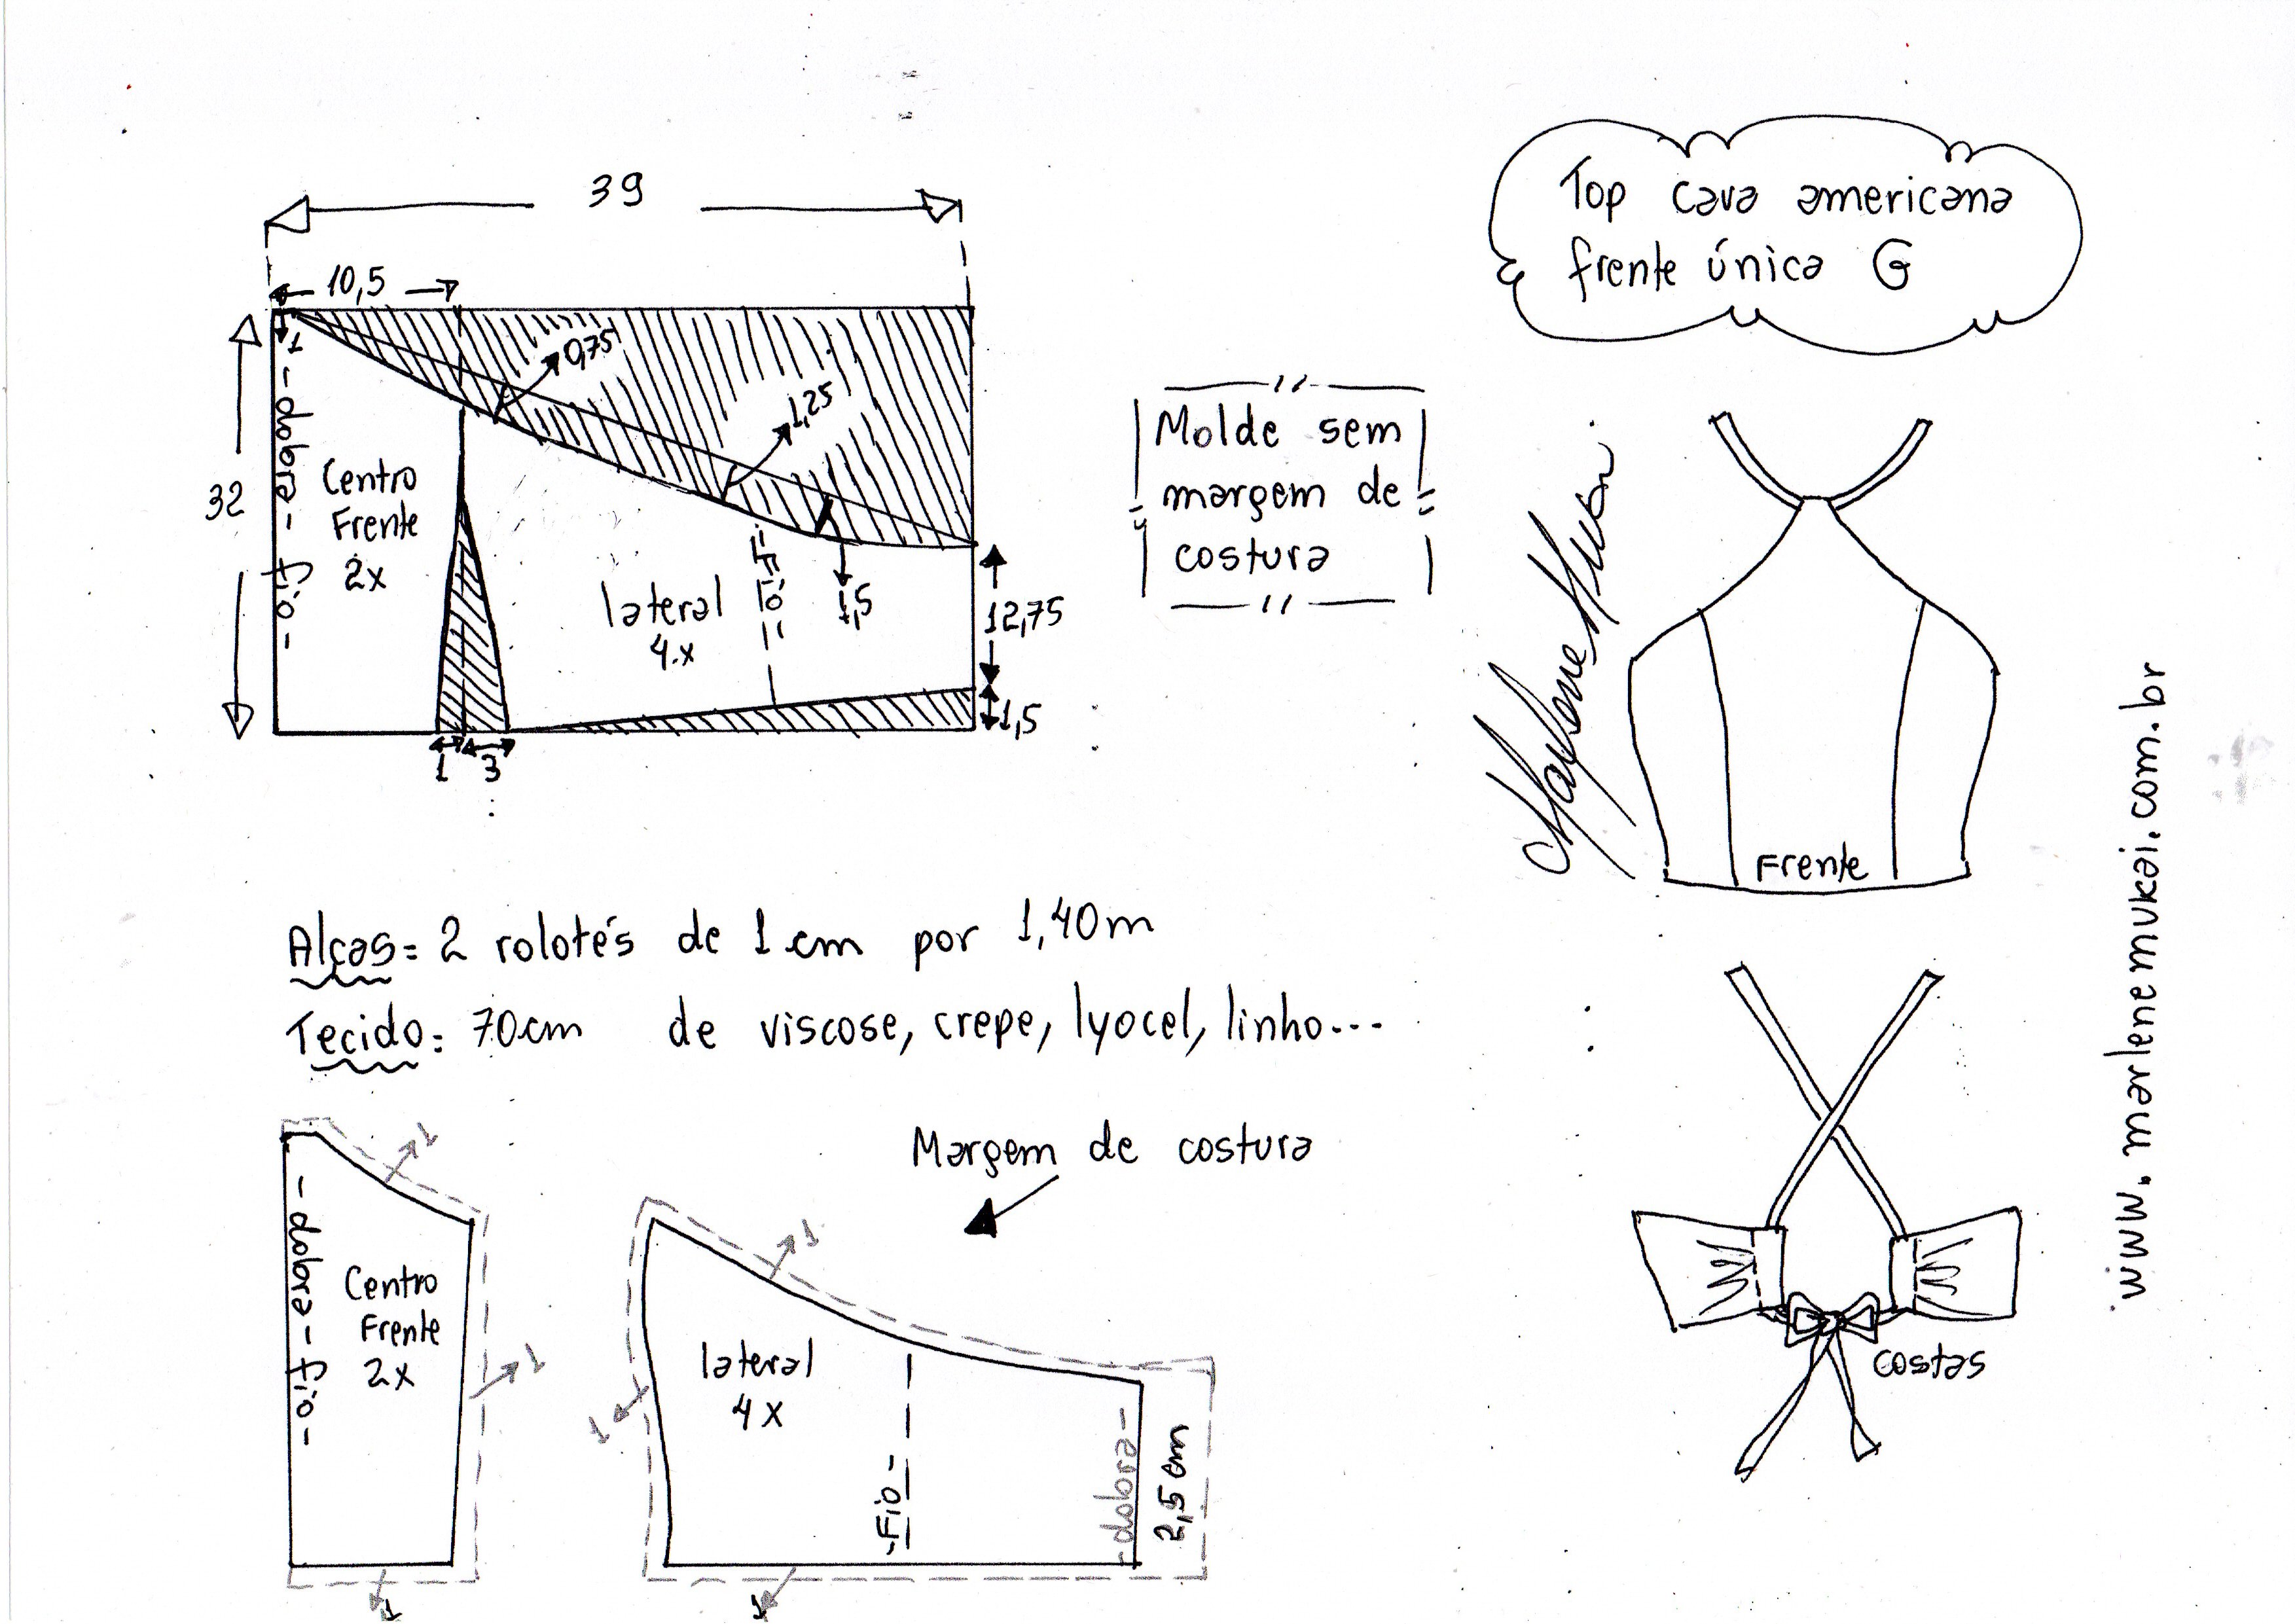 39
10,5
1
0,75
1,25
- dobra - fio -
Centro
Frente
2x
32
lateral
4x
- Fio -
1,5
12,75
1,5
1
3
Top cava americana
frente única G
Molde sem
margem de
costura
Frente
Alças = 2 rolotés de 1 cm por 1,40m
Tecido = 70cm de viscose, crepe, lyocel, linho...
Margem de costura
- dobra - fio -
Centro
Frente
2x
1
1
1
lateral
4x
- Fio -
1
1
1
- dobra -
2,5 cm
costas
www.marlenemukai.com.br